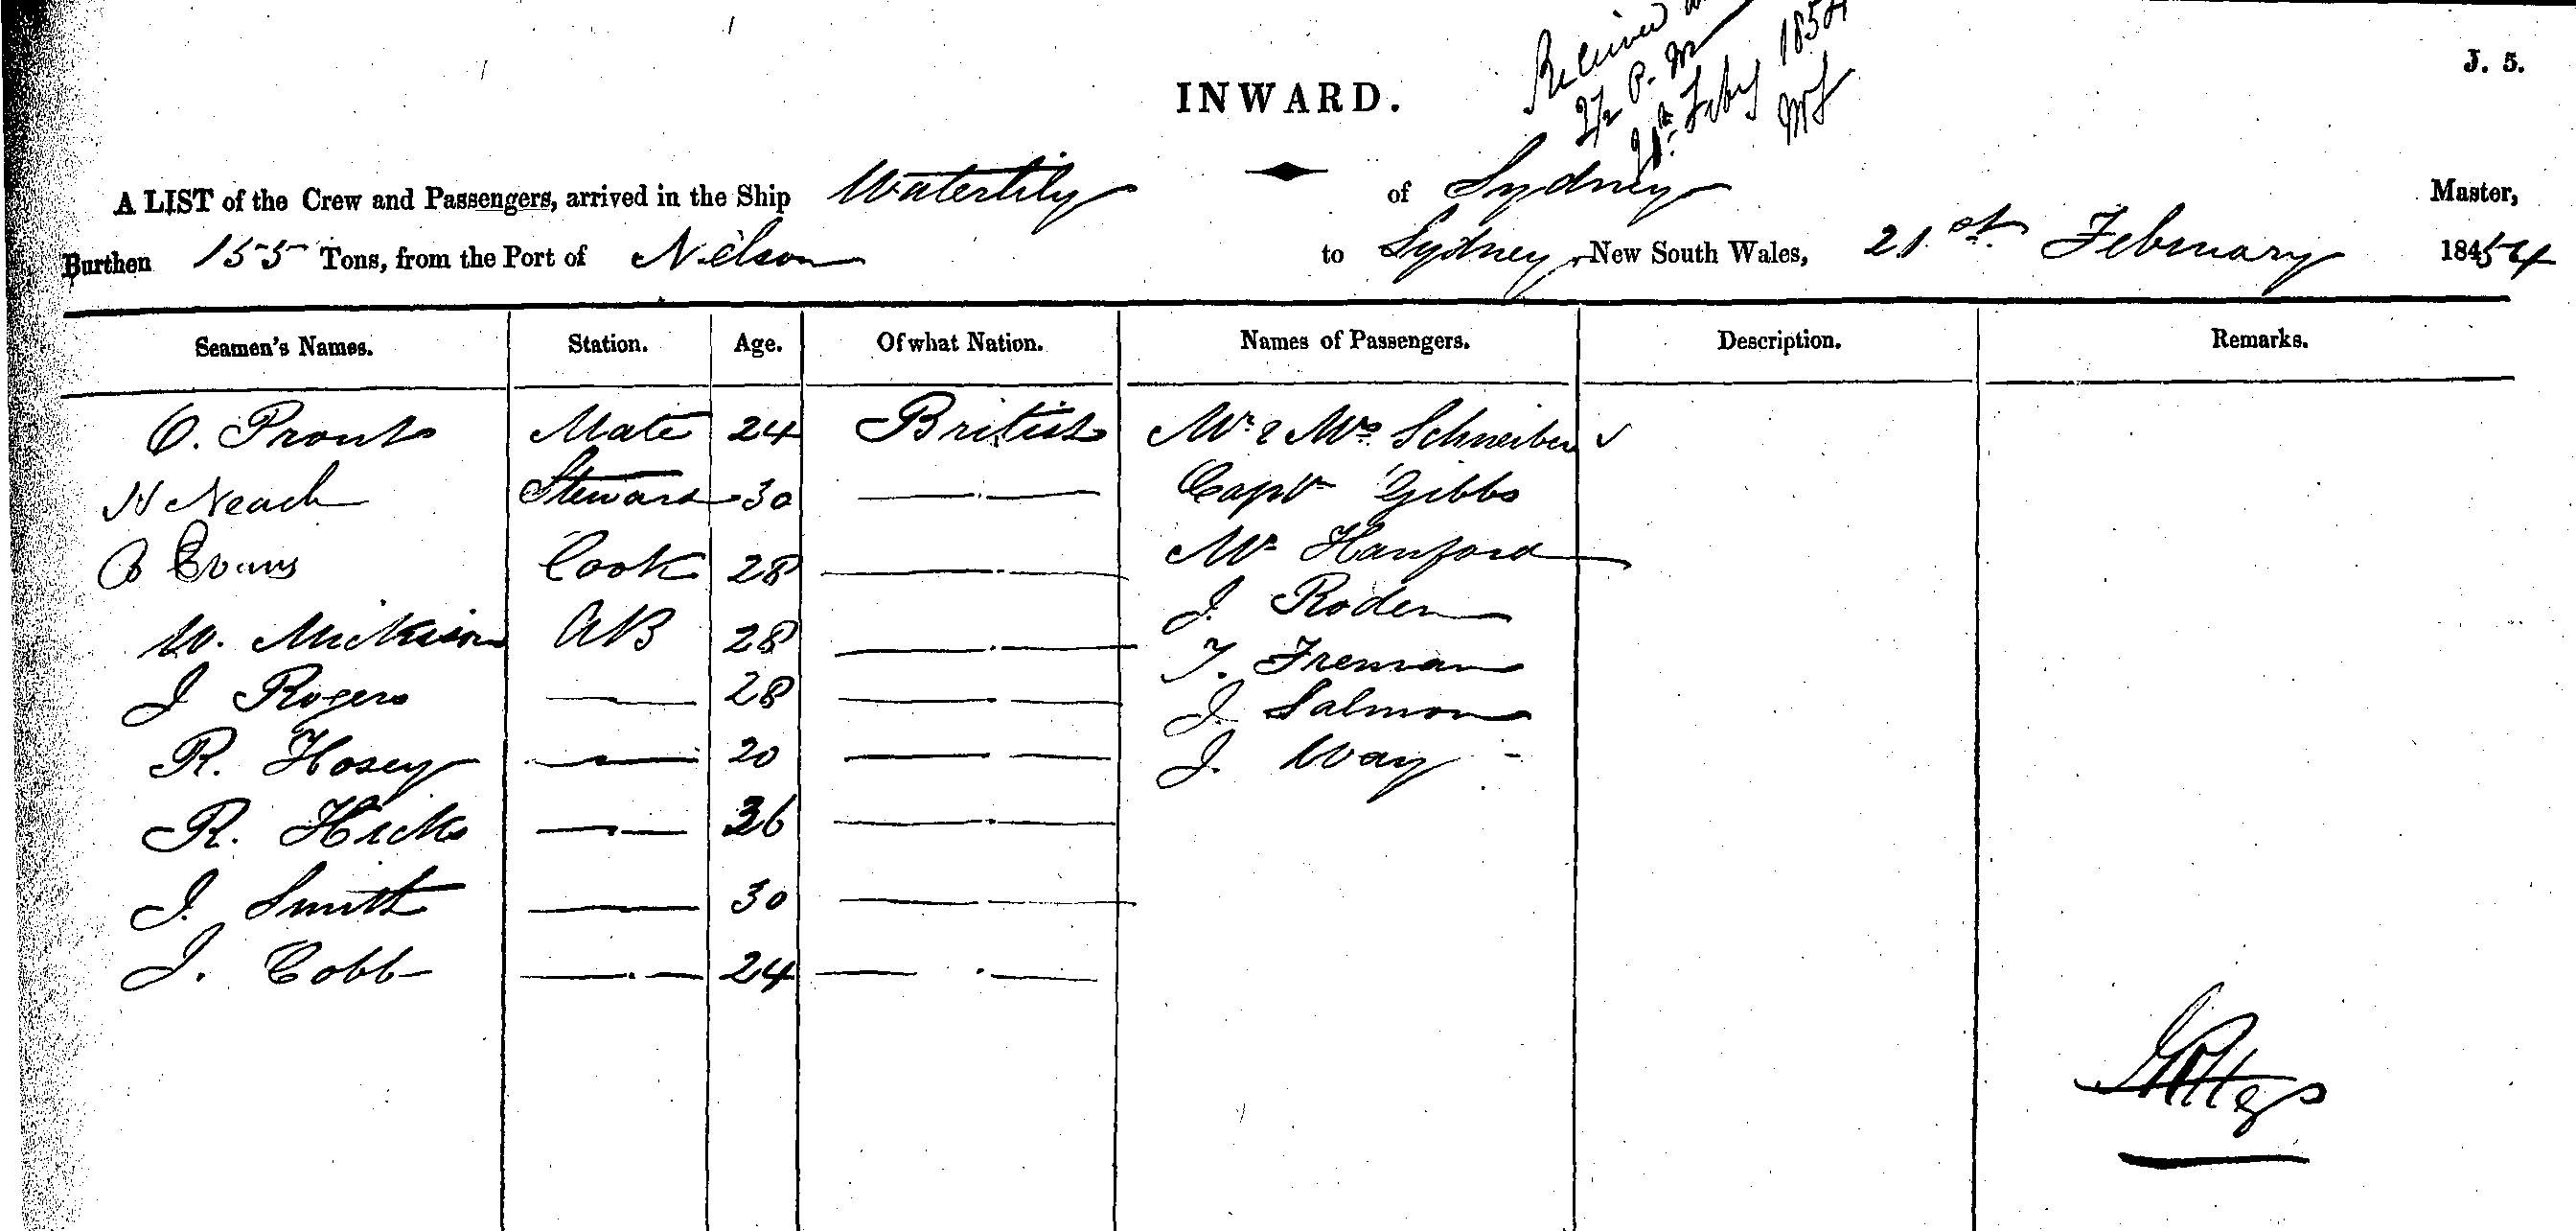 Received
2/2 P. M
Feby 1854
J. 5.
INWARD.
A LIST of the Crew and Passengers, arrived in the Ship Waterlily of Sydney Master,
Burthen 155 Tons, from the Port of Nelson to Sydney, New South Wales, 21st February 18454
Seamen's Names. Station. Age. Of what Nation. Names of Passengers. Description. Remarks.
O. Prout Mate 24 British Mr & Mrs Schneiber ✓
N Neach Steward 30 —.— Captn Gibbs
B Evans Cook 28 —.— Mr Hanford
W. AB 28 —.— J. Roden
J Rogers — 28 —.— T. Freman
R. Hosey — 20 — — J. Salmon
R. Hicks — — 36 —.— J. Way -
J. Smith —.— 30 — —
J. Cobb —.— 24 — . —